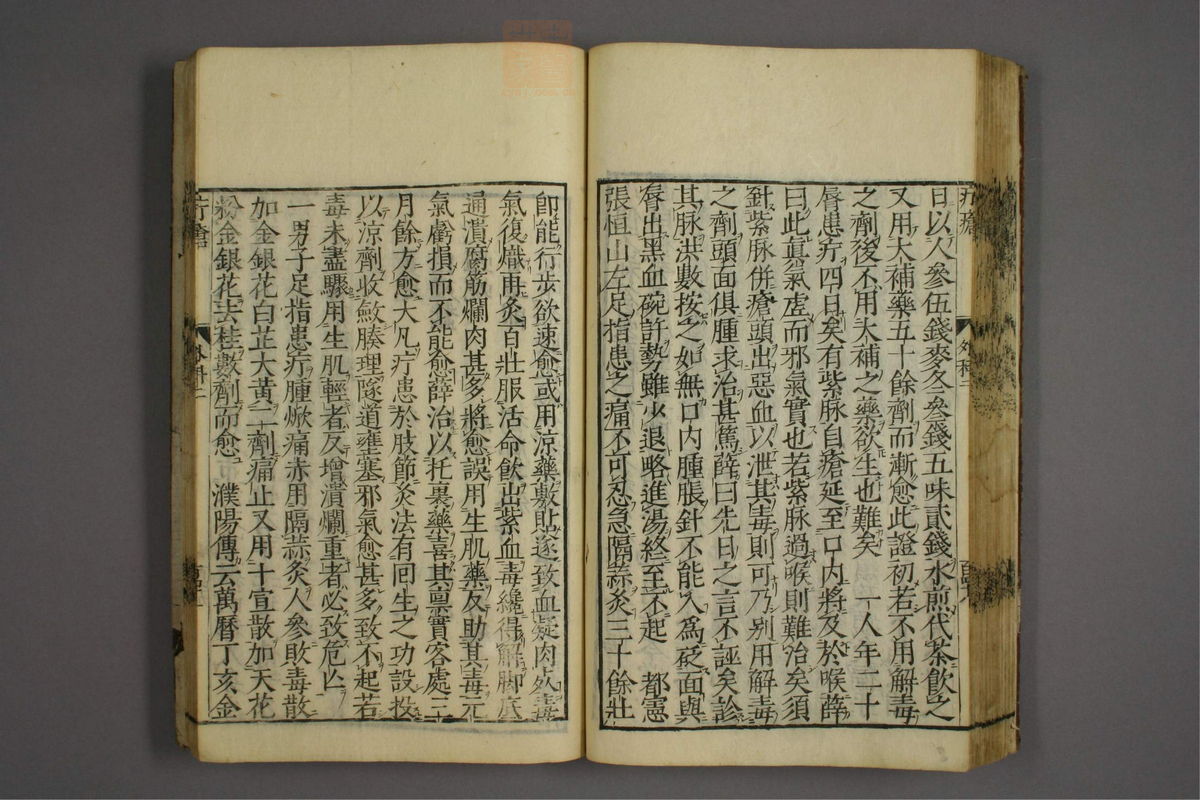 日以人參伍錢麥冬叁錢五味貳錢水煎代茶飲之
又用大補藥五十餘劑而漸愈此證初若不用解毒
之劑後不用大補之藥欲生也難矣 一人年二十
唇患疔四日矣有紫脉自瘡延至口内將及於喉薛
曰此眞氣虚而邪氣實也若紫脉過喉則難治矣須
針紫脉併瘡頭出惡血以泄其毒則可乃别用解毒
之劑頭面俱腫求治甚篤薛曰先日之言不誣矣診
其脉洪數按之如無口内腫脹針不能入爲砭面與
唇出黑血碗許勢雖少退略進湯終至不起 都憲
張恒山左足指患之痛不可忍急隔蒜灸三十餘壯
即能行步欲速愈或用涼藥敷貼遂致血凝肉
氣復熾再灸百壯服活命飲出紫血毒纔得解脚底
通潰腐筋爛肉甚多將愈誤用生肌藥反助其毒元
氣虧損而不能愈薛治以托裏藥喜其稟實客處三
月餘方愈大凡疔患於肢節灸法有回生之功設投
以涼劑收斂腠理隧道壅塞邪氣愈甚多致不起若
毒未盡驟用生肌輕者反增潰爛重者必致危亡
一男子足指患疔腫焮痛赤用隔蒜灸人參敗毒散
加金銀花白芷大黄二劑痛止又用十宣散加天花
粉金銀花去桂數劑而愈 濮陽傳云萬曆丁亥金
疔瘡
外科二